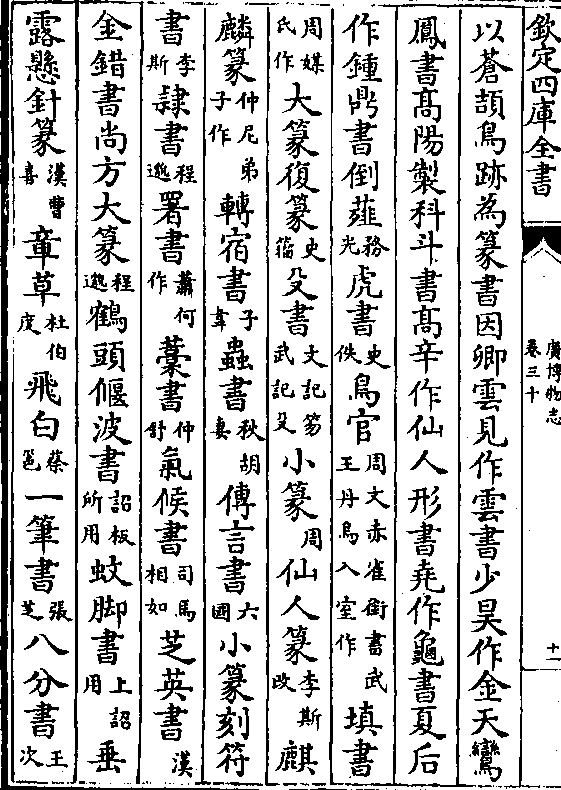 欽定四庫全書
廣博物志
卷三十
十一
以蒼頡鳥跡為篆書因卿雲見作雲書少昊作金天鸞
鳳書高陽製科斗書高辛作仙人形書堯作龜書夏后
作鍾鼎書倒薤務光虎書史佚鳥官周文赤雀銜書武王丹鳥入室作填書
周媒氏作大篆復篆史籀殳書文記笏武記殳小篆周仙人篆李斯改麒
麟篆仲尼弟子作轉宿書子韋蟲書秋胡妻傳言書六國小篆刻符
書李斯隸書程邈署書蕭何作藁書仲舒氣候書司馬相如芝英書漢
金錯書尚方大篆程邈鶴頭偃波書詔板所用蚊脚書上詔用垂
露懸針篆漢曹喜章草杜伯度飛白蔡邕一筆書張芝八分書王次